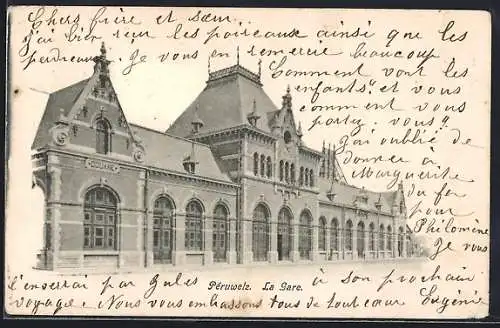 Chers frère et sœur
j'ai bien reçu les poireaux ainsi que les
perdreaux. Je vous en remercie beaucoup
Comment vont les
enfants? et vous
comment vous
portez vous?
J'ai oublié de
donner à
Marguerite
du fer
pour
Philomène
Je vous
l'enverrai par Jules à son prochain
voyage. Nous vous embrassons tous de tout cœur Eugénie
Péruwelz. La Gare.